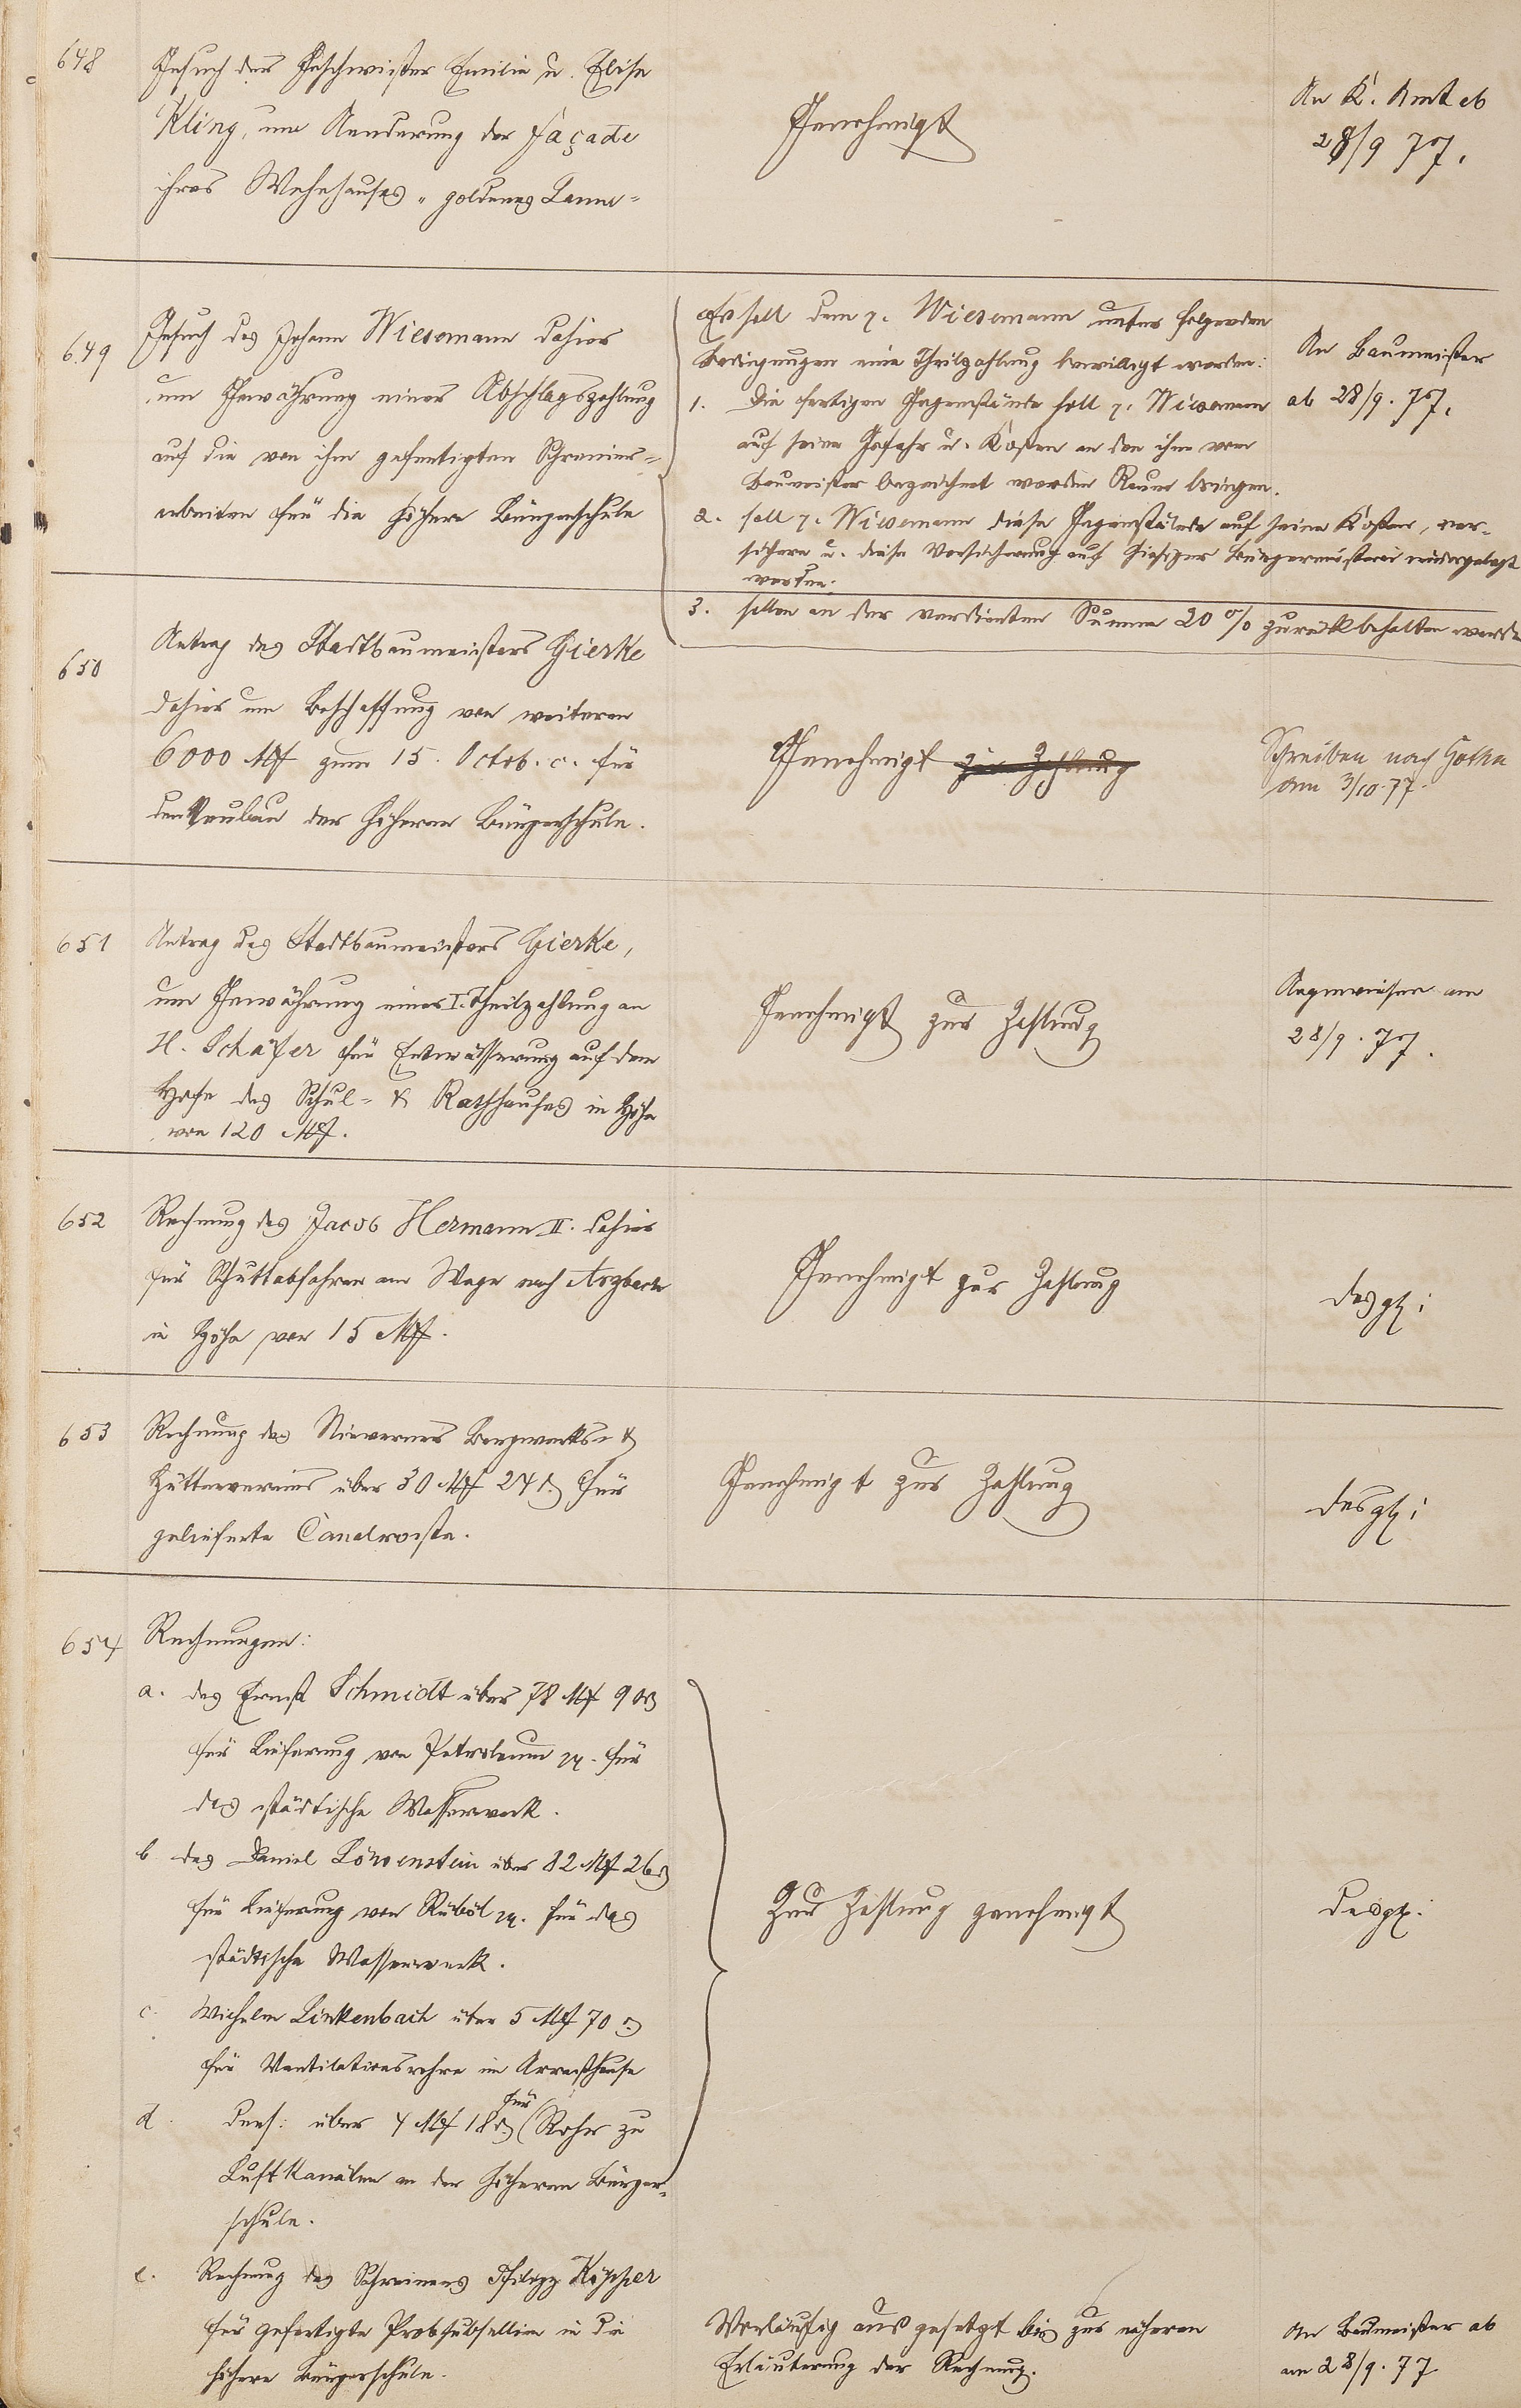 648
Gesuch der Geschwister Emilie u. Elise
Kling, um Aenderung der Façade
ihres Wohnhauses „goldenes Lamm“
Genehmigt
An K. Amt ab
28/9 77.
649
Gesuch des Johann Wiesemann dahier
um Gewährung einer Abschlagszahlung
auf die von ihm gefertigten Schreiner-
arbeiten für die höhere Bürgerschule
Es soll dem p. Wiesemann unter folgenden
Bedingungen eine Theilzahlung bewilligt werden:
1. Die fertigen Gegenstände soll p. Wiesemann
auf seine Gefahr u. Kosten an den ihm vom
Baumeister bezeichnet werden Raum bringen.
2. soll p. Wiesemann diese Gegenstände auf seine Kosten, ver-
sichern u. diese Versicherung auf hiesiger Bürgermeisterei niedergelegt
werden;
3. sollen an der verdienten Summe 20 % zurückbehalten werden
An Baumeister
ab 28/9. 77.
650
Antrag des Stadtbaumeisters Gierke
dahier um Beschaffung von weiteren
6000 Mk zum 15. Octob. c. für
den Neubau der höheren Bürgerschule.
Genehmigt zur Zahlung
Schreiben nach Gotha
am 3/10. 77.
651
Antrag des Stadtbaumeisters Gierke,
um Gewährung einer I. Theilzahlung an
H. Schäfer für Entwässerung auf dem
Hofe des Schul- & Rathhauses in Höhe
von 120 Mk.
Genehmigt zur Zahlung
Angewiesen am
28/9. 77.
652
Rechnung des Jacob Hermann II. dahier
für Schuttabfahren am Wege nach Arzbach
in Höhe von 15 Mk.
Genehmigt zur Zahlung
desgl:
653
Rechnung des Nieverner Bergwerks- &
Hüttenvereins über 30 Mk 24 d. für
gelieferte Canalroste.
Genehmigt zur Zahlung
desgl:
654
Rechnungen:
a. des Ernst Schmidt über 78 Mk 90 d
für Lieferung von Petroleum pp. für
das städtische Wasserwerk.
b des Daniel Löwenstein über 82 Mk 26 d
für Lieferung von Rüböl pp. für das
städtische Wasserwerk.
c. Wilhelm Linkenbach über 5 Mk 70 d
für Ventilationsrohre im Arresthause
d. Ders: über 4 Mk 18 d. für Rohr zu
Luftkanälen an der höheren Bürger-
schule.
Zur Zahlung genehmigt
desgl.
e. Rechnung des Schreiners Philipp Köpper
für gefertigte Probsubsellien in die
höhere Bürgerschule.
Vorläufig ausgesetzt bis zur näheren
Erläuterung der Rechnung.
An Baumeister ab
am 28/9. 77